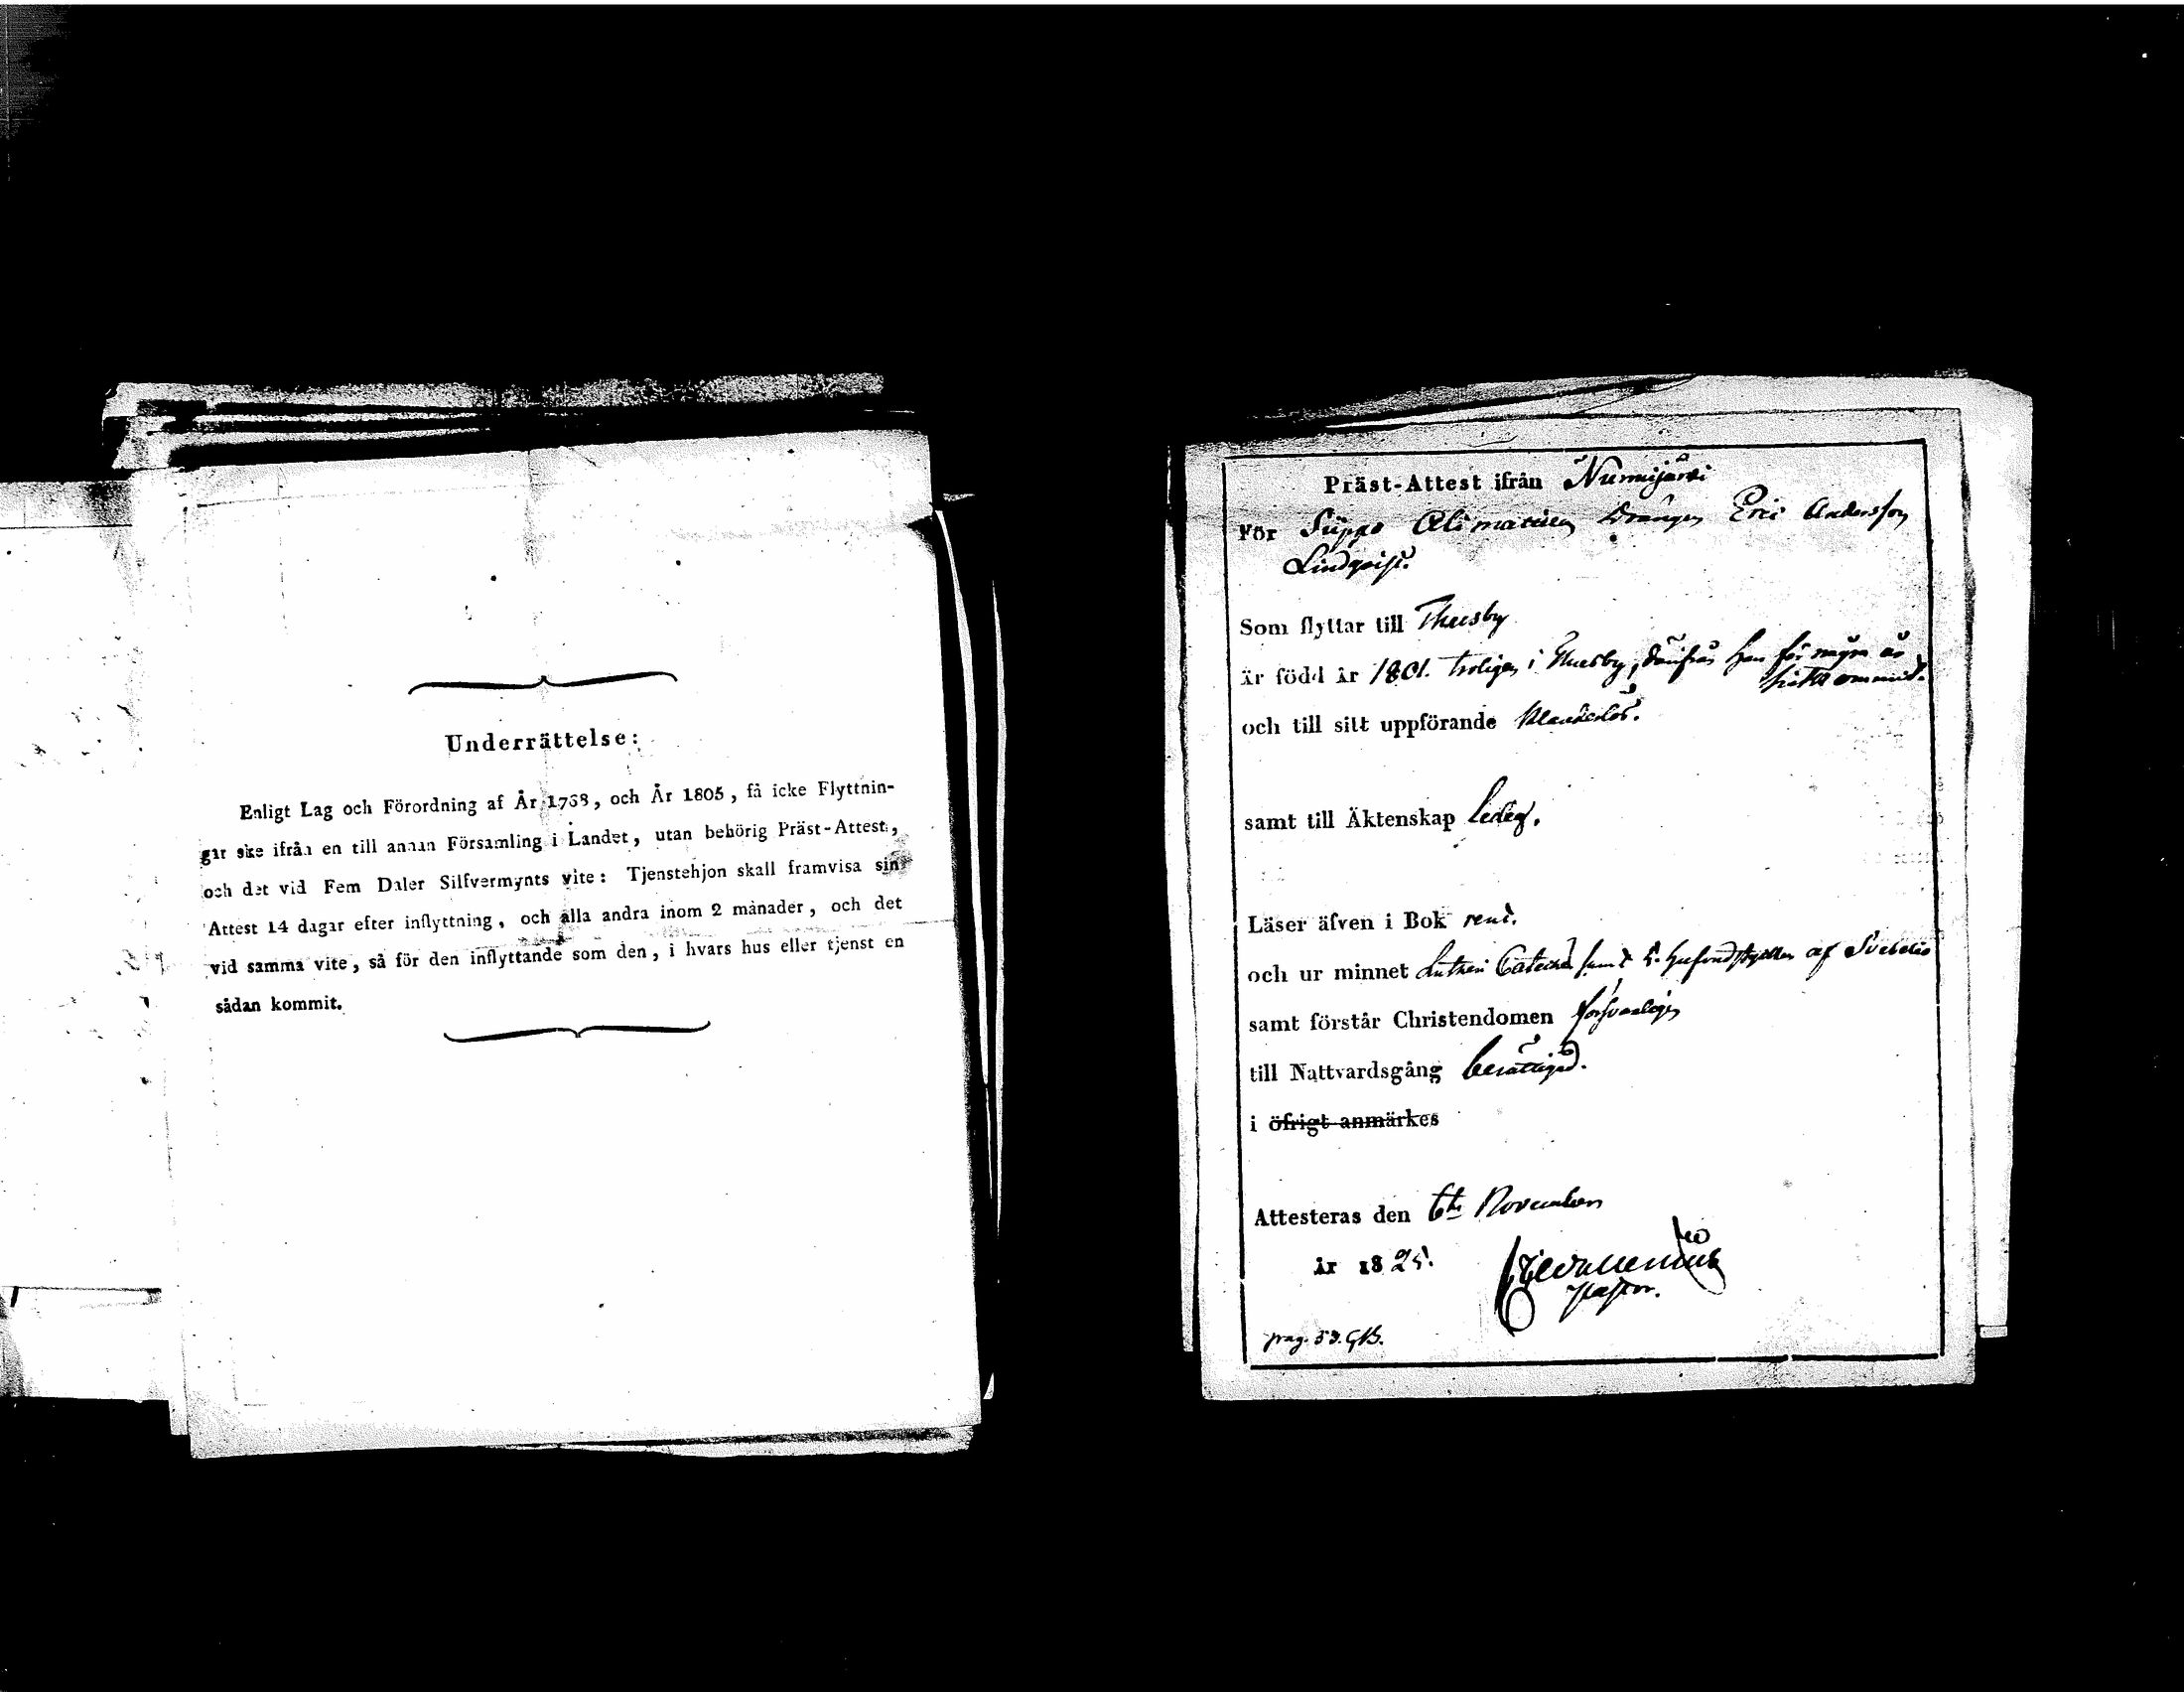 Underrättelse:
Enligt Lag och Förordning af År 1768, och År 1805, få icke Flyttnin-
gar ske ifrån en till annan Församling i Landet, utan behörig Präst-Attest,
och det vid Fem Daler Silfvermynts vite: Tjenstehjon skall framvisa sin
Attest 14 dagar efter inflyttning, och alla andra inom 2 månader, och det
vid samma vite, så för den inflyttande som den, i hvars hus eller tjenst en
sådan kommit.
Präst-Attest ifrån Nurmijärvi
För Drängen Eric Andersson
Lindqvist.
Som flyttar till Thusby
är född år 1801. troligen i Thusby, därifrån han för några år
hitkommit.
och till sitt uppförande klanderlös.
samt till Äktenskap ledig.
Läser äfven i Bok rent.
och ur minnet Lutheri Cateches samt af Svebelii
samt förstår Christendomen försvarligen
till Nattvardsgång berättigad.
i öfrigt anmärkes
Attesteras den 6te November
år 1825.
Pastor.
pag. 53.